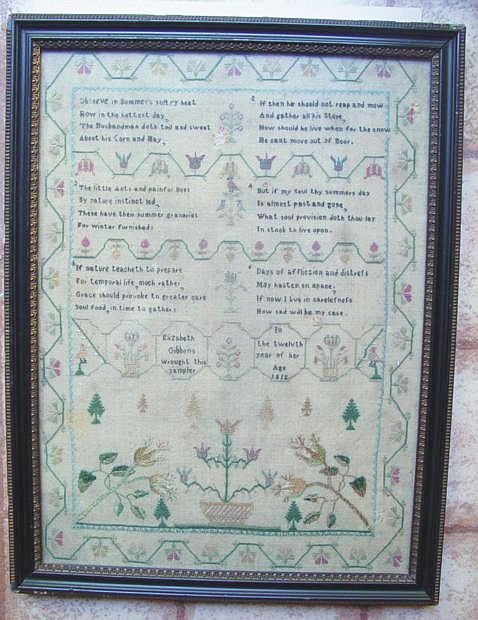 Observe in Summer's sultry heat
How in the hottest day
The Husbandman doth toil and sweat
About his Corn and Hay,
2
If then he should not reap and mow
And gather all his Store
How should he live when for the snow
He cant move out of Door.
The little Ants and painful Bees
By nature instinct led
These have their summer granaries
For Winter furnished:
4
But if my soul thy summers day
Is almost past and gone
What soul provision doth thou lay
In stock to live upon.
If nature teacheth to prepare
For temporal life much rather
Grace should provoke to greater care
Soul food in time to gather:
6
Days of affliction and distress
May hasten on apace
If now I live in carelesness
How sad will be my case.
Elizabeth
Gibbons
wrought this
sampler
In
the twelvth
year of her
Age
1812